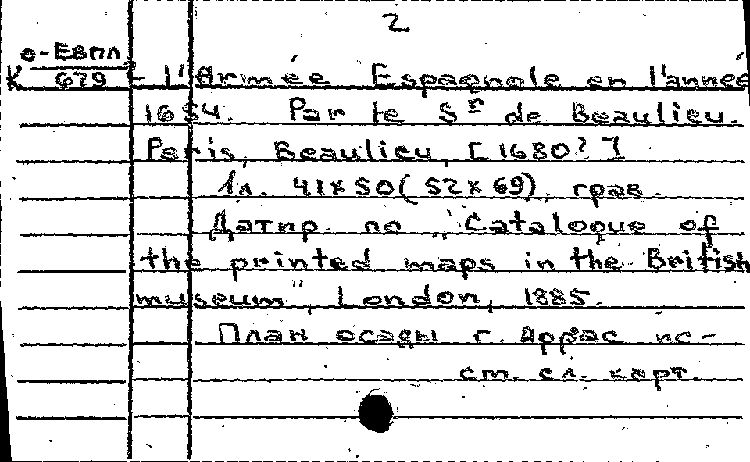 2
О-Евпл
К 679 - l'Armée Espagnole en l'année
1654. Par le Sr de Beaulieu.
Paris, Beaulieu, [1680?]
1л. 41×50(52×69), грав.
Датир. по "Catalogue of
the printed maps in the British
museum", London, 1885.
План осады г. Аррас ис-
см. сл. карт.